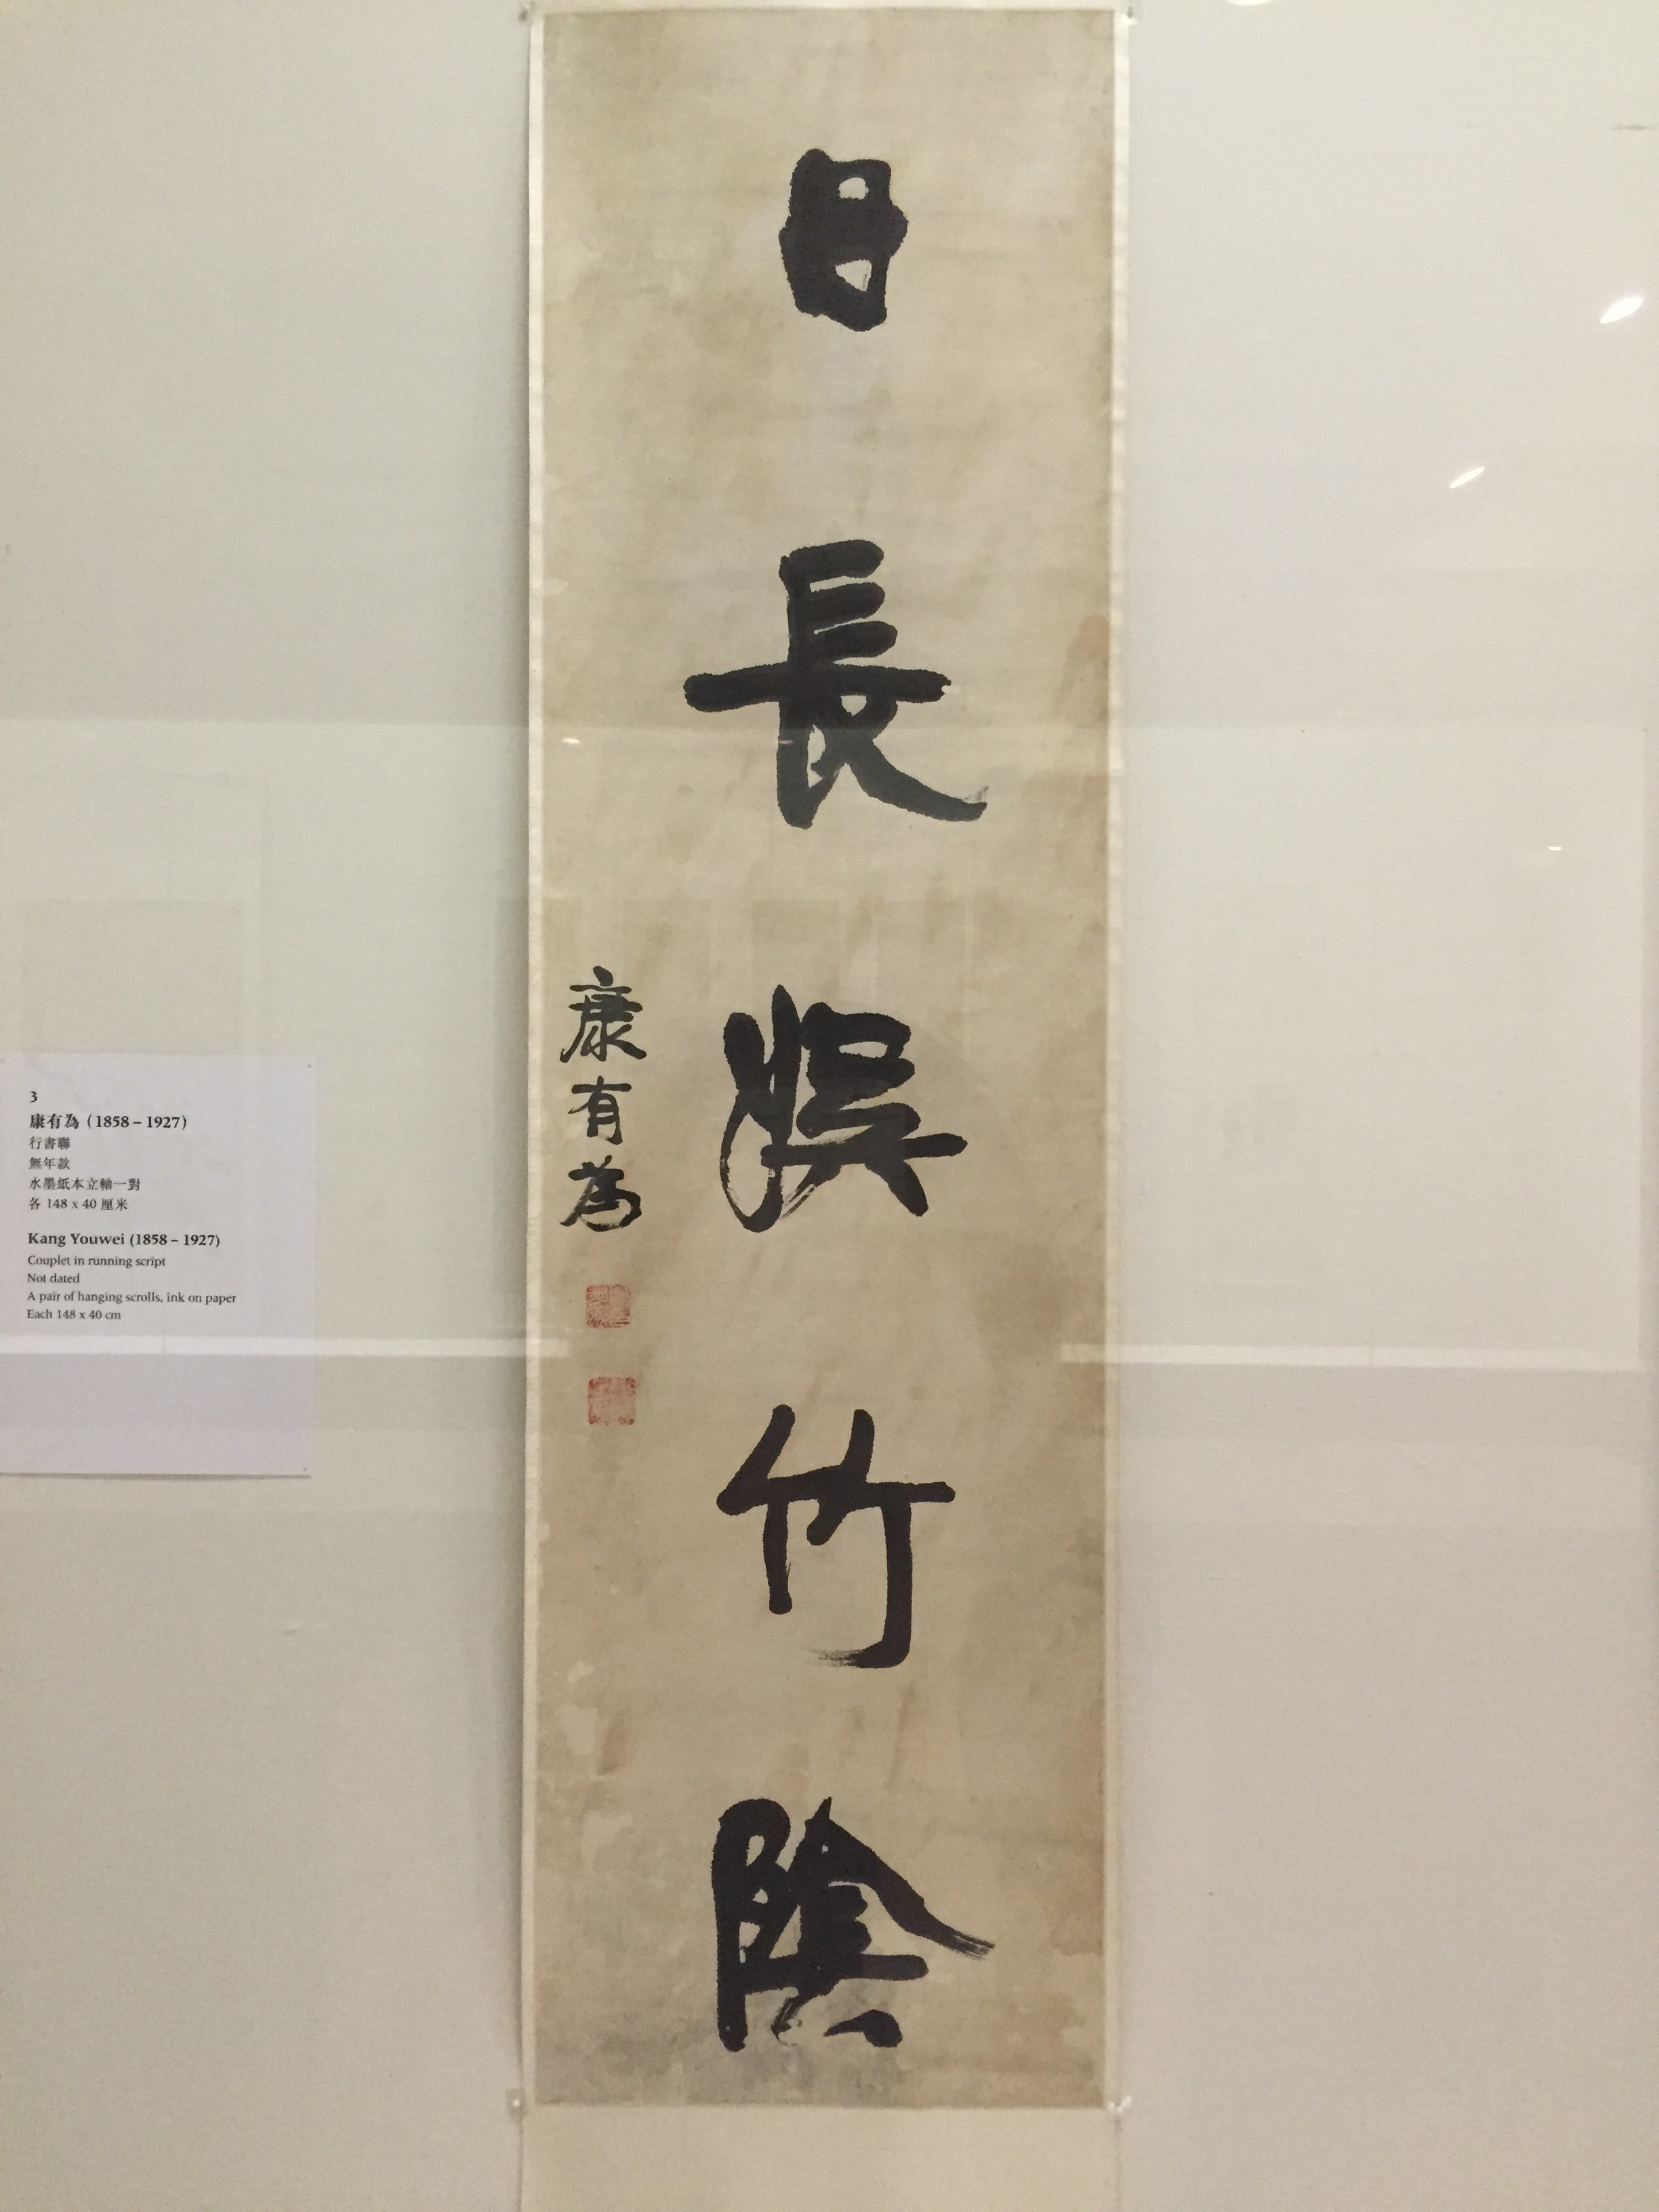 日長娛竹陰
康有為
3
康有為 (1858 – 1927)
行書聯
無年款
水墨紙本立軸一對
各 148 x 40 厘米
Kang Youwei (1858 – 1927)
Couplet in running script
Not dated
A pair of hanging scrolls, ink on paper
Each 148 x 40 cm